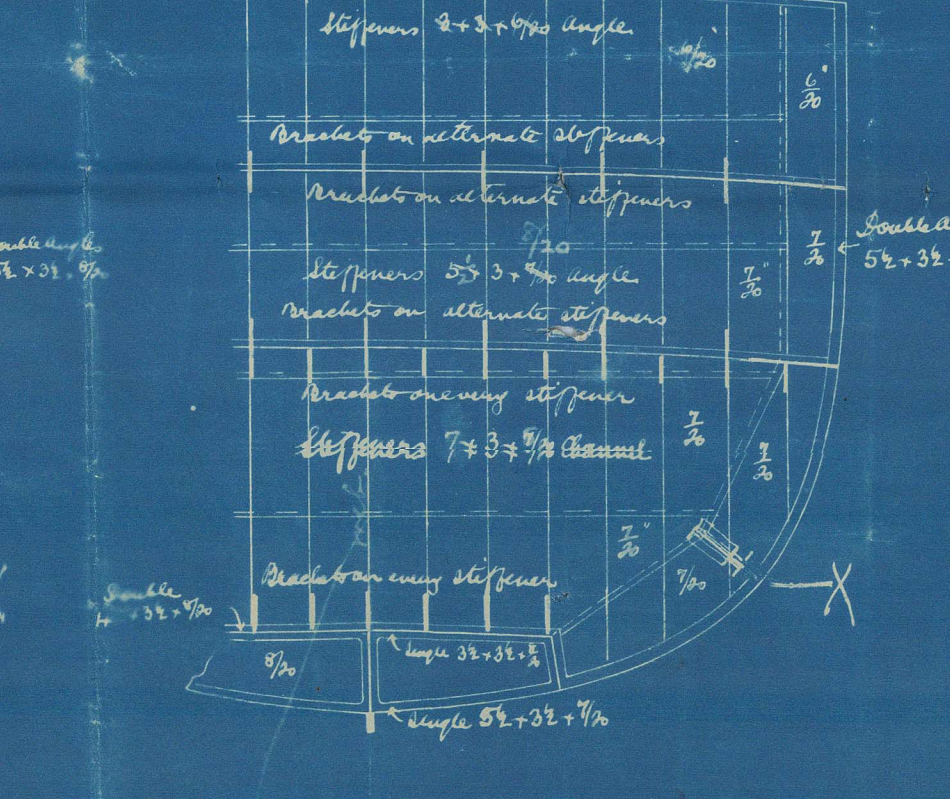 Stiffeners 3 + 3 + 6/20 Angle
6/20
6/20"
Brackets on alternate stiffeners
Brackets on alternate stiffeners
8/20
7/20
Double A
5½ + 3½ +
Double Angles
5½ × 3½ + 8/20
Stiffeners 5½ + 3 + 7/20 Angle
7/20"
Brackets on alternate stiffeners
Brackets on every stiffener
Stiffeners 7 + 3 + 7/20 Channel
7/20
7/20
7/20"
Brackets on every stiffener
7/20
X
Double
+ 3½ + 8/20
8/20
Single 3½ + 3½ + 8/20
Single 5½ + 3½ + 7/20